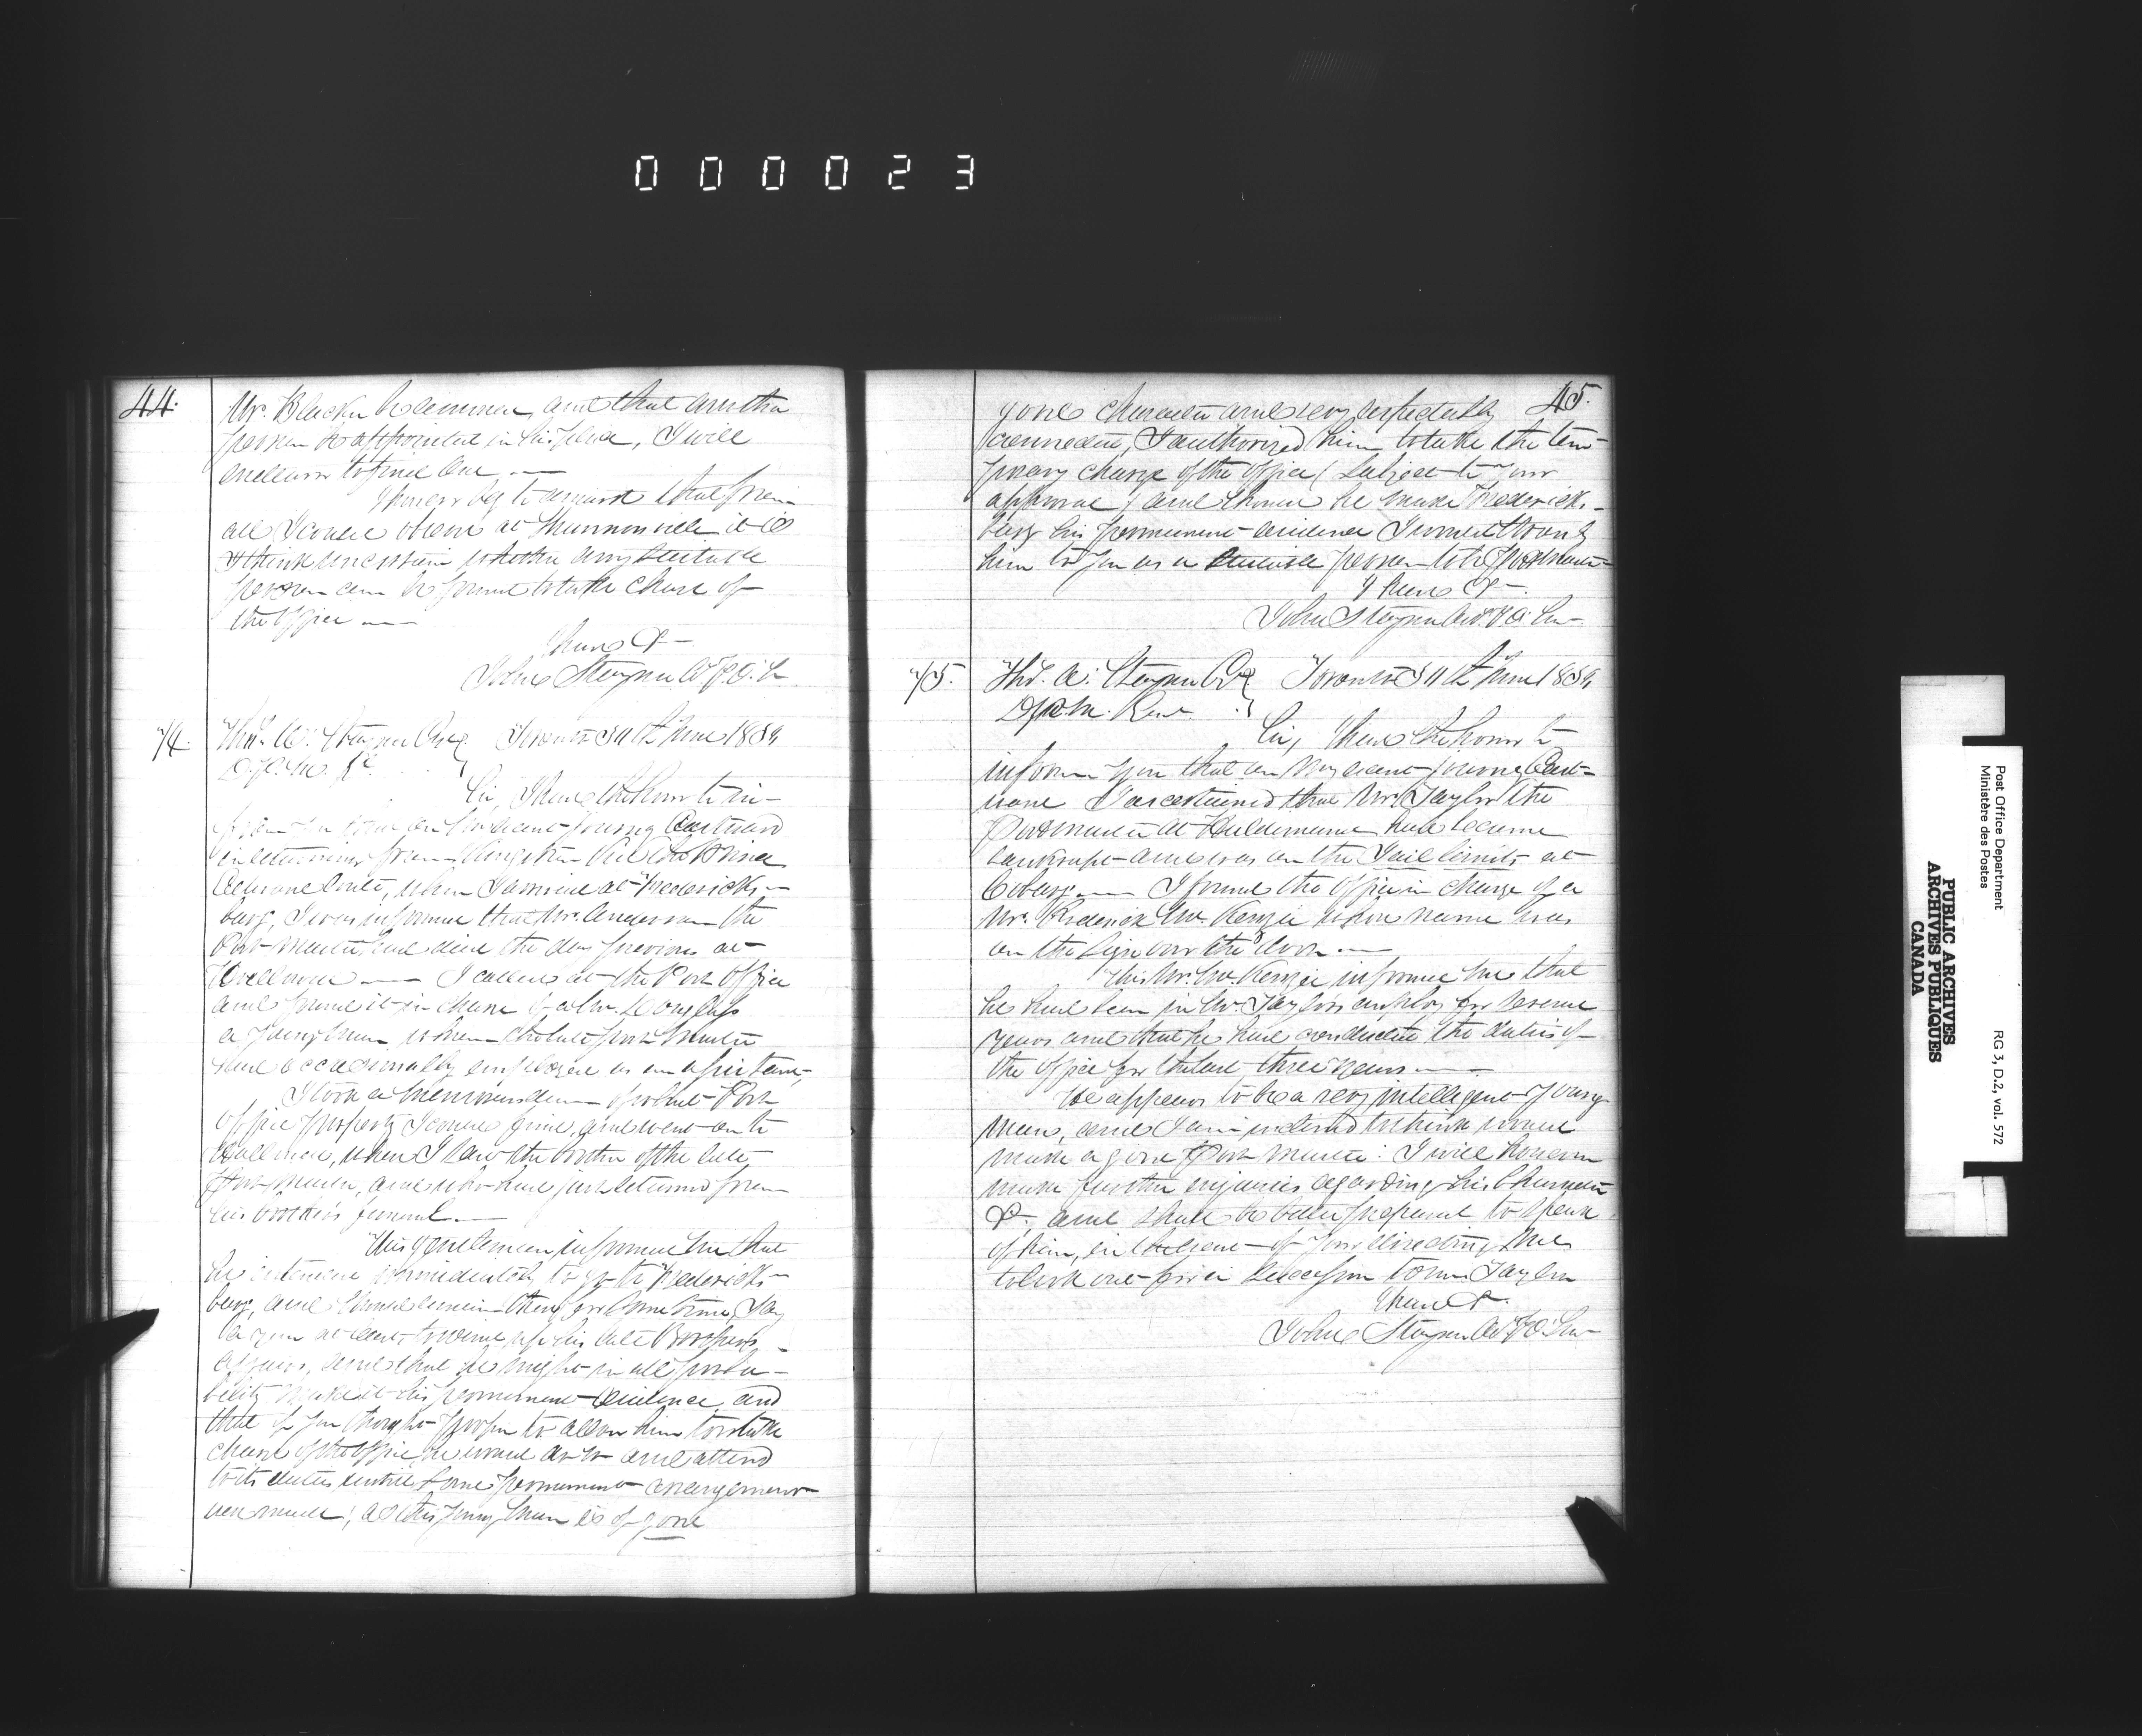 000023
44.
Mr. Blacker be removed, and that another
person be appointed in his place, I will
endeavour to find one
I however beg to remark that from
all I could observe at Shannonville it is
I think uncertain whether any suitable
person can be found to take charge of
the office
I have &
John Stayner Act. P. O. S
Thos. A. Stayner Esq. Toronto 3 11th June 1839
D. P. M. G
Sir, I have the honor to in-
form you that on my recent journey Eastward
in returning from Kingston via the
route, when I arrived at Fredericks-
burg, I was informed that Mr. Anderson the
Post Master had died the day previous at
I called at the Post Office
and found it in charge of a Mr. Douglass
a young man whom the late Post Master
had occasionally employed as an assistant,
I took a memorandum of what Post
Office property I could find, and went on to
when I saw the brother of the late
Post Master, and who had just returned from
his brother's funeral
This gentleman informed me that
he intended immediately to go to Fredericks-
burg, and should remain there for some time, say
a year at least to wind up his late Brother's
affairs, and that he might in all proba-
bility make it his permanent residence, and
that if you thought proper to allow him to take
charge of the office, he would do so and attend
to its duties until some permanent arrangement
was made; as this young man is of good
45.
good character and very respectably
connected, I authorized him to take the tem-
porary charge of the office (subject to your
approval) and should he make Fredericks-
burg his permanent residence I would
him to you as a suitable person to be Postmaster
I have &
John Stayner Act. P. O. Sur
75. Thos. A. Stayner Esq. Toronto 3 11th June 1839
D. P. M. Genl.
Sir, I have the honor to
inform you that on my recent journey East-
ward I ascertained that Mr. Taylor the
Postmaster at Haldimand had become
bankrupt and was on the Jail limits at
Cobourg. I found the office in charge of a
Mr. Roderick McKenzie whose name was
on the sign over the door.
This Mr. McKenzie informed me that
he had been in Mr. Taylor's employ for several
years and that he had conducted the duties of
the office for the last three years
He appears to be a very intelligent young
man, and I am inclined to think would
make a good Post Master: I will however
make further enquiries regarding his Character
&, and shall be better prepared to speak
of him, in the event of your directing me
to look out for a Successor to Mr. Taylor
I have &.
John Stayner Act. P. O. Sur
PUBLIC ARCHIVES
ARCHIVES PUBLIQUES
CANADA
Post Office Department
Ministère des Postes
RG 3, D.2, vol. 572